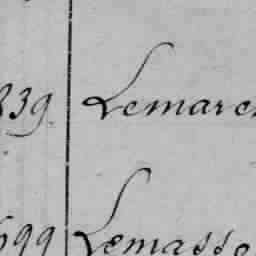 839 Lemarc
699 Lemasso